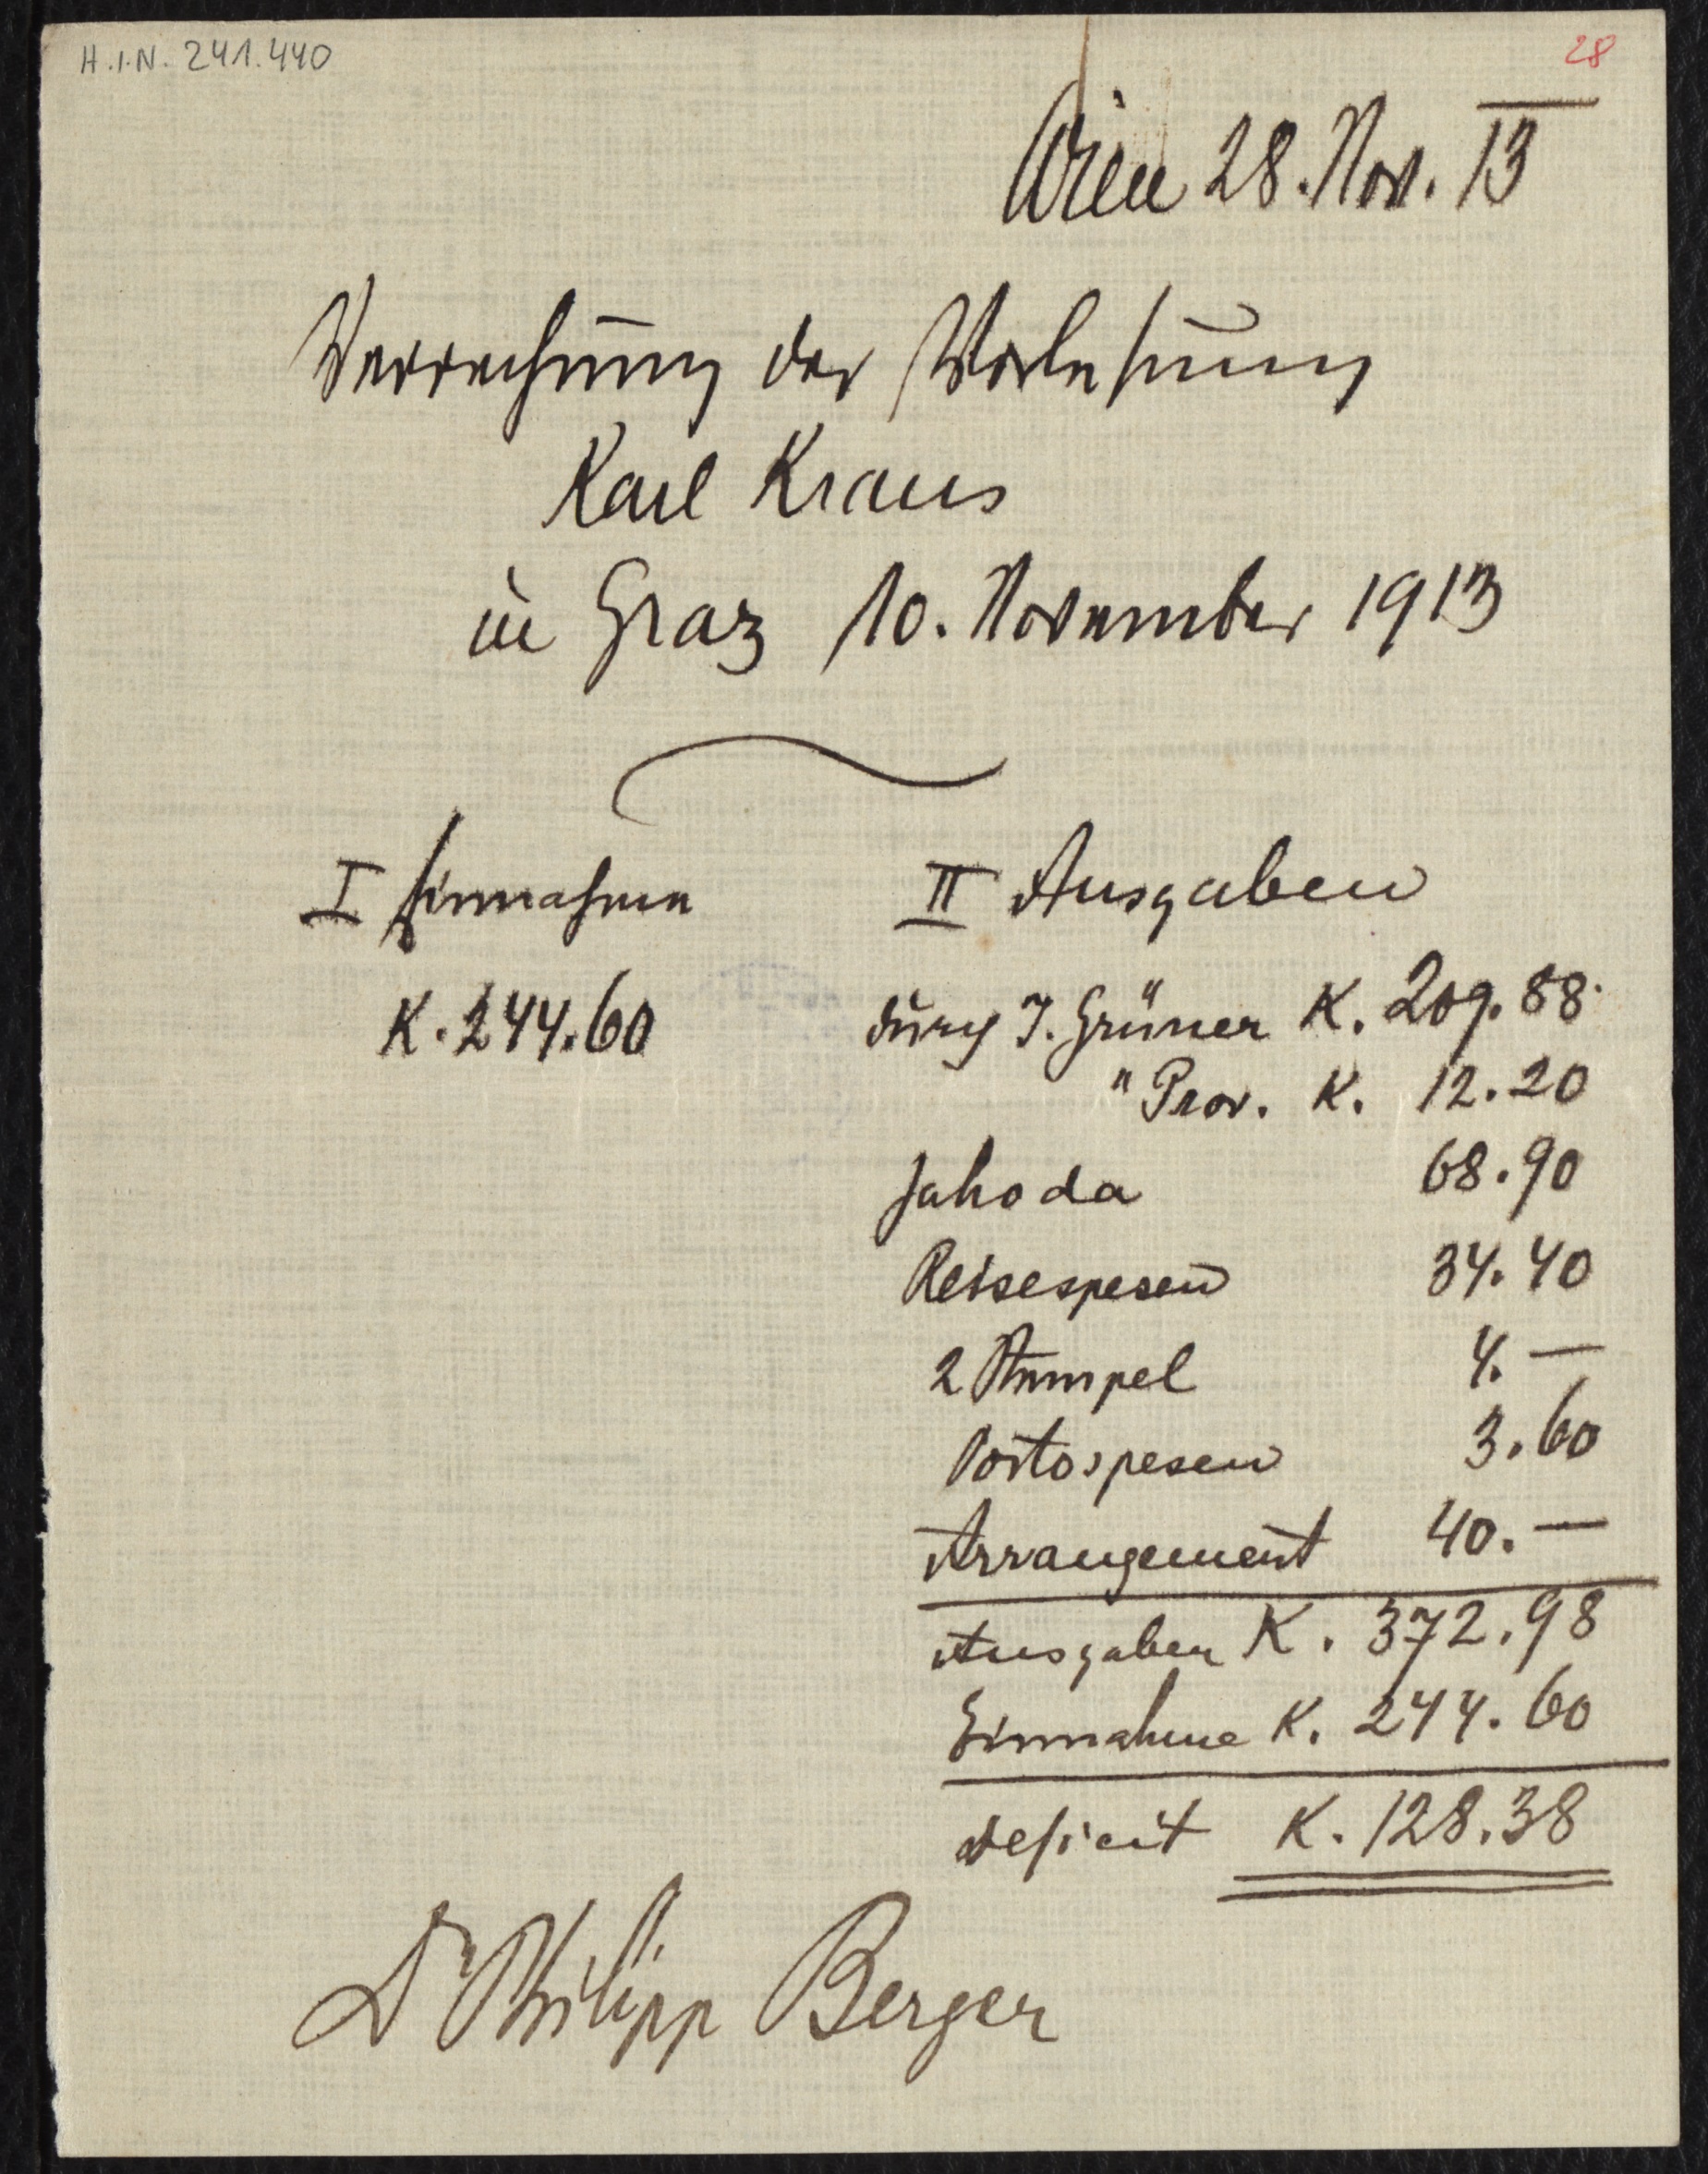 H.I.N. 241.440
28
Wien 28. Nov. 13
Verrechnung der Vorlesung
Karl Kraus
in Graz 10. November 1913
I Einnahmen
II Ausgaben
K. 244.60
durch J. Grüner K. 209.88
" Prov. K. 12.20
Jahoda 68.90
Reisespesen 34.40
2 Stempel 4.—
Portospesen 3.60
Arrangement 40.—
Ausgaben K. 372.98
Einnahme K. 244.60
deficit K. 128.38
Dr Philipp Berger